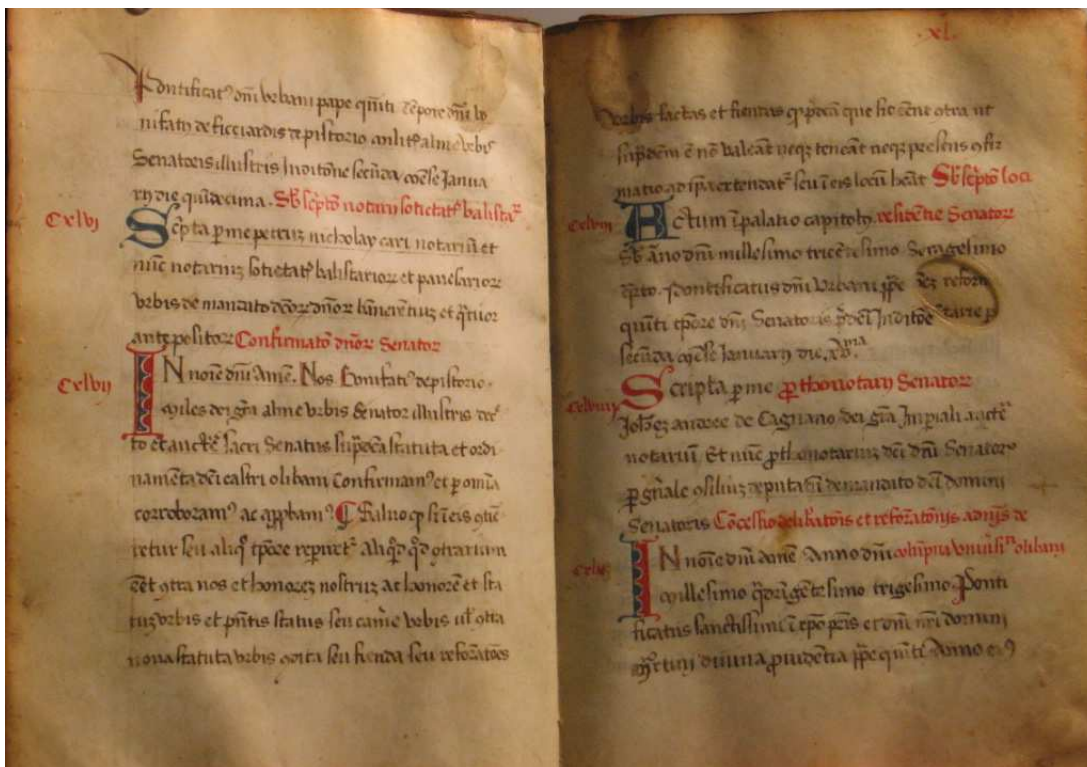 Pontificat⁹ dn̄i Vrbani pape quīti tēpore dn̄i bo
nifatij de ricciardis de pistorio milit⁹ alme vrbis
Senatoris illustris Inditōne secūda mēse Janua
rij die quīdecima. Sb̄ sc̄pto notarij sotietat⁹ balista⁊
Cxlvj
Sc̄pta p me petruz nicholay cari notariū et
nūc notariuz sotietat⁹ balistarior⁊ et pauesarior⁊
vrbis de mandato dc̄or⁊ dn̄or⁊ banerētiuz et q̄tuor
antepositor⁊ Confirmatō dn̄or⁊ Senator⁊
Cxlvij
IN noīe dn̄i amē. Nos bonifati⁹ de pistorio.
Miles dei gr̄a alme vrbis Senator illustris
to et aucte sacri Senatus sup̄dc̄a statuta et ordi
namēta dc̄i castri olibani Confirmam⁹ et p omīa
corroboram⁹ ac app̄bam⁹. ¶ Saluo q̄ si ī eis ɔtīe
retur seu aliq̄ tp̄ore repiret⁊ aliq̄d q̄d ɔtrarium
eēt ɔtra nos et honorez nostruz ac honorē et sta
tuz vrbis et pn̄tis status seu camē vrbis ul' ɔtra
noua statuta vrbis ɔdita seu fienda seu reforatōes
.xl.
vrbis factas et fiendas
sup̄dēm ē nō valeāt neqz teneāt neqz presens ɔfir
matio ad sp̄a extendat⁊ seu ī eis locū heāt Sb̄ sc̄pto loci
Cxlviij
Actum ī palatio capitolij. residentie Senator⁊
Sb̄ āno dn̄i millesimo tricētesimo Seragesimo
q̄rto. Pontificatus dn̄i Vrbani pp̄e
quīti tp̄ore dn̄i Senatoris p̄dc̄i Inditōe
secūda mēse Januarij die. xv.ma
Cxlviiij
Scripta p me p̄thonotarij Senator⁊
Joh̄ez andree de Cagnano dei gr̄a Imp̄iali aucte
notariū Et nūc p̄thonotariuz dc̄i dn̄i Senator⁊
p gn̄ale ɔsiliuz deputatū de mandato dc̄i domini
Senatoris Cōcessio delib̄atōis et reforatōnis
Cxlix
IN noīe dn̄i amē Anno dn̄i olibani
Millesimo q̄drīgētesimo trigesimo Ponti
ficatus sanctissimi ī xp̄o p̄ris et dn̄i nr̄i domini
Martini diuina prouidētia pp̄e quīti Anno